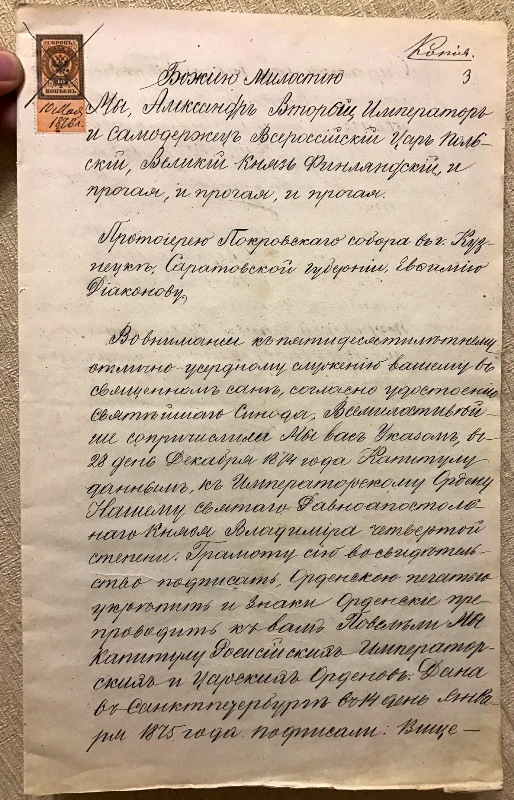 Копія.
3
СОРОКЪ
КОПѢЕКЪ
10 Мая
1876 г.
Божію Милостію
Мы, Александръ Вторый, Императоръ
и Самодержецъ Всероссійскій Царь Поль-
скій, Великій Князь Финляндскій, и
прочая, и прочая, и прочая.
Протоіерею Покровскаго собора въ г. Куз-
нецкѣ, Саратовской губерніи, Евѳимію
Діаконову,
Во вниманіи къ пятидесятилѣтнему
отлично-усердному служенію вашему въ
священномъ санѣ, согласно удостоенію
Святѣйшаго Синода, Всемилостивѣй-
ше сопричислили Мы васъ Указомъ, въ
28 день Декабря 1874 года Капитулу
даннымъ, къ Императорскому Ордену
Нашему святаго Равноапостоль-
наго Князя Владиміра четвертой
степени. Грамоту сію во свидѣтель-
ство подписать, Орденскою печатью
укрѣпить и знаки Орденскіе пре-
проводить къ вамъ Повелѣли Мы
Капитулу Россійскихъ Император-
скихъ и Царскихъ Орденовъ. Дана
въ Санктпетербургѣ въ 14 день Янва-
ря 1875 года. подписали: Вице-